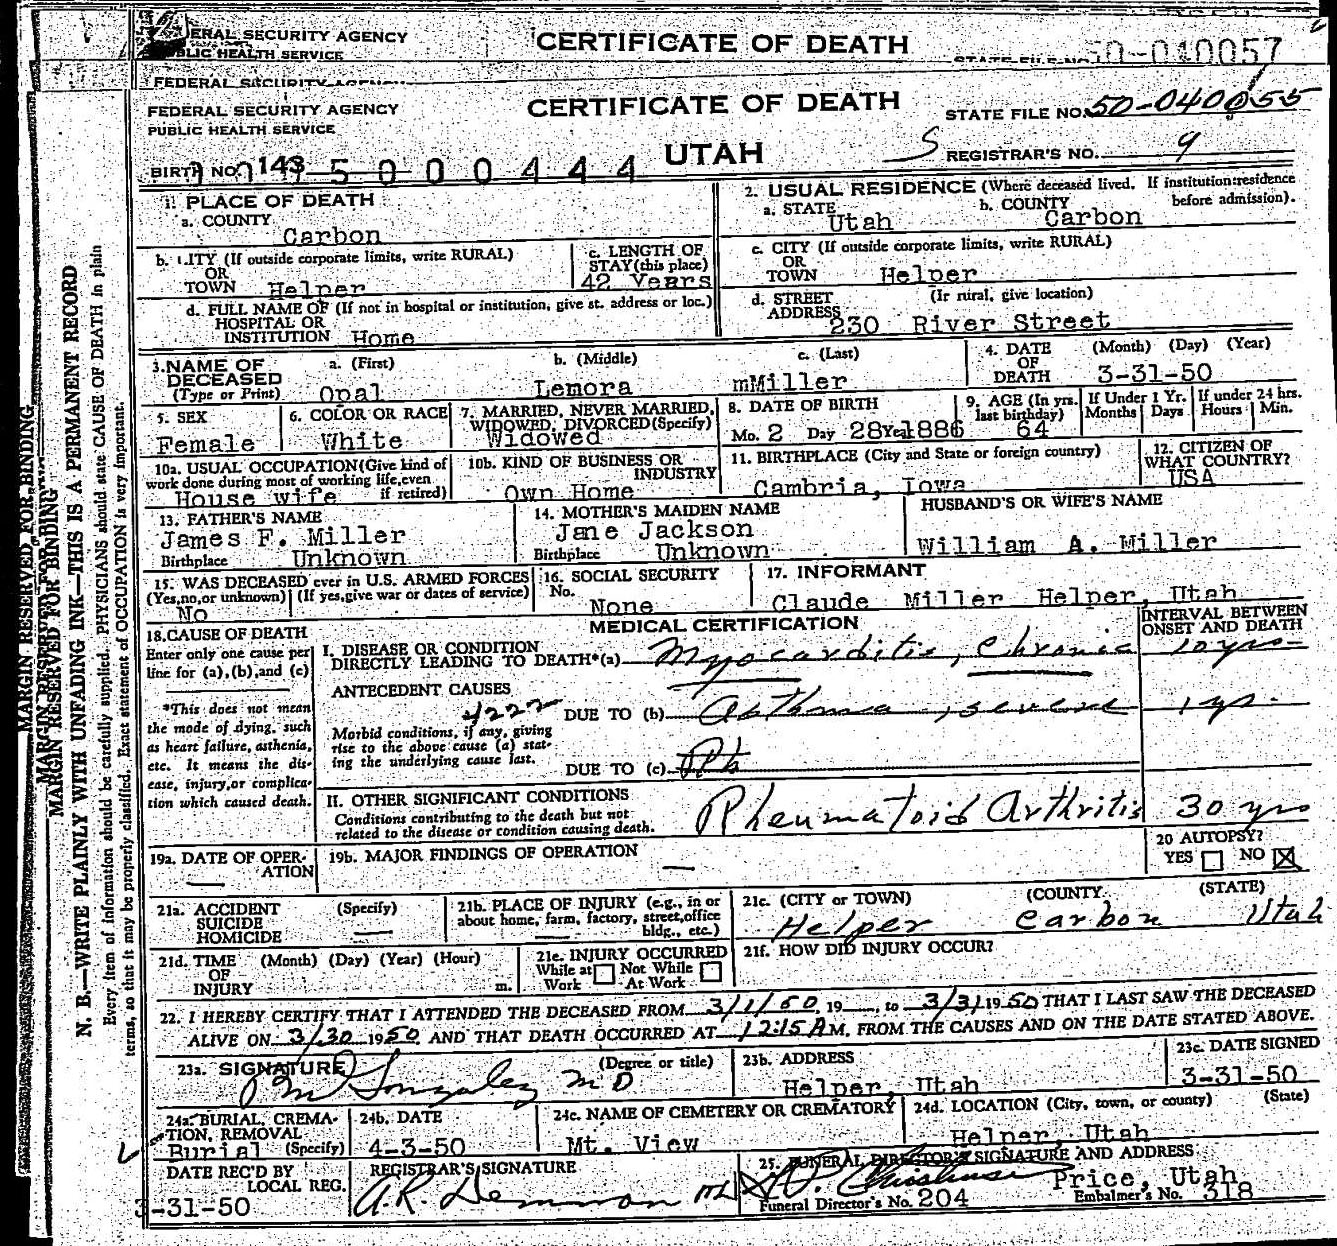 ERAL SECURITY AGENCY
LIC HEALTH SERVICE
CERTIFICATE OF DEATH
50-040057
FEDERAL SECURITY AGENCY
FEDERAL SECURITY AGENCY
PUBLIC HEALTH SERVICE
CERTIFICATE OF DEATH
STATE FILE NO. 50-040055
BIRTH NO. 143 5000444
UTAH
S REGISTRAR'S NO. 9
1. PLACE OF DEATH
a. COUNTY
Carbon
2. USUAL RESIDENCE (Where deceased lived. If institution: residence before admission).
a. STATE Utah
b. COUNTY Carbon
b. CITY (If outside corporate limits, write RURAL)
OR
TOWN Helper
c. LENGTH OF
STAY (this place)
42 Years
c. CITY (If outside corporate limits, write RURAL)
OR
TOWN Helper
d. FULL NAME OF (If not in hospital or institution, give st. address or loc.)
HOSPITAL OR
INSTITUTION Home
d. STREET (If rural, give location)
ADDRESS
230 River Street
3. NAME OF
DECEASED
(Type or Print)
a. (First)
Opal
b. (Middle)
Lemora
c. (Last)
mMiller
4. DATE
OF
DEATH
(Month) (Day) (Year)
3-31-50
5. SEX
Female
6. COLOR OR RACE
White
7. MARRIED, NEVER MARRIED,
WIDOWED, DIVORCED (Specify)
Widowed
8. DATE OF BIRTH
Mo. 2 Day 28 Yr. 1886
9. AGE (In yrs.
last birthday)
64
If Under 1 Yr.
Months Days
If under 24 hrs.
Hours Min.
10a. USUAL OCCUPATION (Give kind of
work done during most of working life, even
if retired)
House wife
10b. KIND OF BUSINESS OR
INDUSTRY
Own Home
11. BIRTHPLACE (City and State or foreign country)
Cambria, Iowa
12. CITIZEN OF
WHAT COUNTRY?
USA
13. FATHER'S NAME
James F. Miller
Birthplace Unknown
14. MOTHER'S MAIDEN NAME
Jane Jackson
Birthplace Unknown
HUSBAND'S OR WIFE'S NAME
William A. Miller
15. WAS DECEASED ever in U.S. ARMED FORCES
(Yes, no, or unknown) (If yes, give war or dates of service)
No
16. SOCIAL SECURITY
No.
None
17. INFORMANT
Claude Miller Helper, Utah
18. CAUSE OF DEATH
Enter only one cause per
line for (a), (b), and (c)
*This does not mean
the mode of dying, such
as heart failure, asthenia,
etc. It means the dis-
ease, injury, or complica-
tion which caused death.
MEDICAL CERTIFICATION
INTERVAL BETWEEN
ONSET AND DEATH
I. DISEASE OR CONDITION
DIRECTLY LEADING TO DEATH*(a) Myocarditis, Chronic 10 yrs
ANTECEDENT CAUSES
4222 DUE TO (b) Asthma, severe 1 yr.
Morbid conditions, if any, giving
rise to the above cause (a) stat-
ing the underlying cause last.
DUE TO (c) Rh
II. OTHER SIGNIFICANT CONDITIONS
Conditions contributing to the death but not
related to the disease or condition causing death.
Rheumatoid Arthritis 30 yrs
19a. DATE OF OPER-
ATION
—
19b. MAJOR FINDINGS OF OPERATION
—
20 AUTOPSY?
YES NO X
21a. ACCIDENT (Specify)
SUICIDE
HOMICIDE —
21b. PLACE OF INJURY (e.g., in or
about home, farm, factory, street, office
bldg., etc.)
—
21c. (CITY or TOWN) (COUNTY (STATE)
Helper Carbon Utah
21d. TIME (Month) (Day) (Year) (Hour)
OF
INJURY m.
21e. INJURY OCCURRED
While at Work Not While At Work
21f. HOW DID INJURY OCCUR?
22. I HEREBY CERTIFY THAT I ATTENDED THE DECEASED FROM 3/1/50, 19__, to 3/31, 1950 THAT I LAST SAW THE DECEASED
ALIVE ON 3/30 1950 AND THAT DEATH OCCURRED AT 12:15 A M. FROM THE CAUSES AND ON THE DATE STATED ABOVE.
23a. SIGNATURE (Degree or title)
Gonzalez MD
23b. ADDRESS
Helper, Utah
23c. DATE SIGNED
3-31-50
24a. BURIAL, CREMA-
TION, REMOVAL
(Specify)
Burial
24b. DATE
4-3-50
24c. NAME OF CEMETERY OR CREMATORY
Mt. View
24d. LOCATION (City, town, or county) (State)
Helper, Utah
DATE REC'D BY
LOCAL REG.
3-31-50
REGISTRAR'S SIGNATURE
A.R. Demman
25. FUNERAL DIRECTOR'S SIGNATURE AND ADDRESS
Price, Utah
Funeral Director's No. 204
Embalmer's No. 318
MARGIN RESERVED FOR BINDING
MARGIN RESERVED FOR BINDING
N. B.—WRITE PLAINLY WITH UNFADING INK—THIS IS A PERMANENT RECORD
Every item of information should be carefully supplied. PHYSICIANS should state CAUSE OF DEATH in plain
terms, so that it may be properly classified. Exact statement of OCCUPATION is very important.